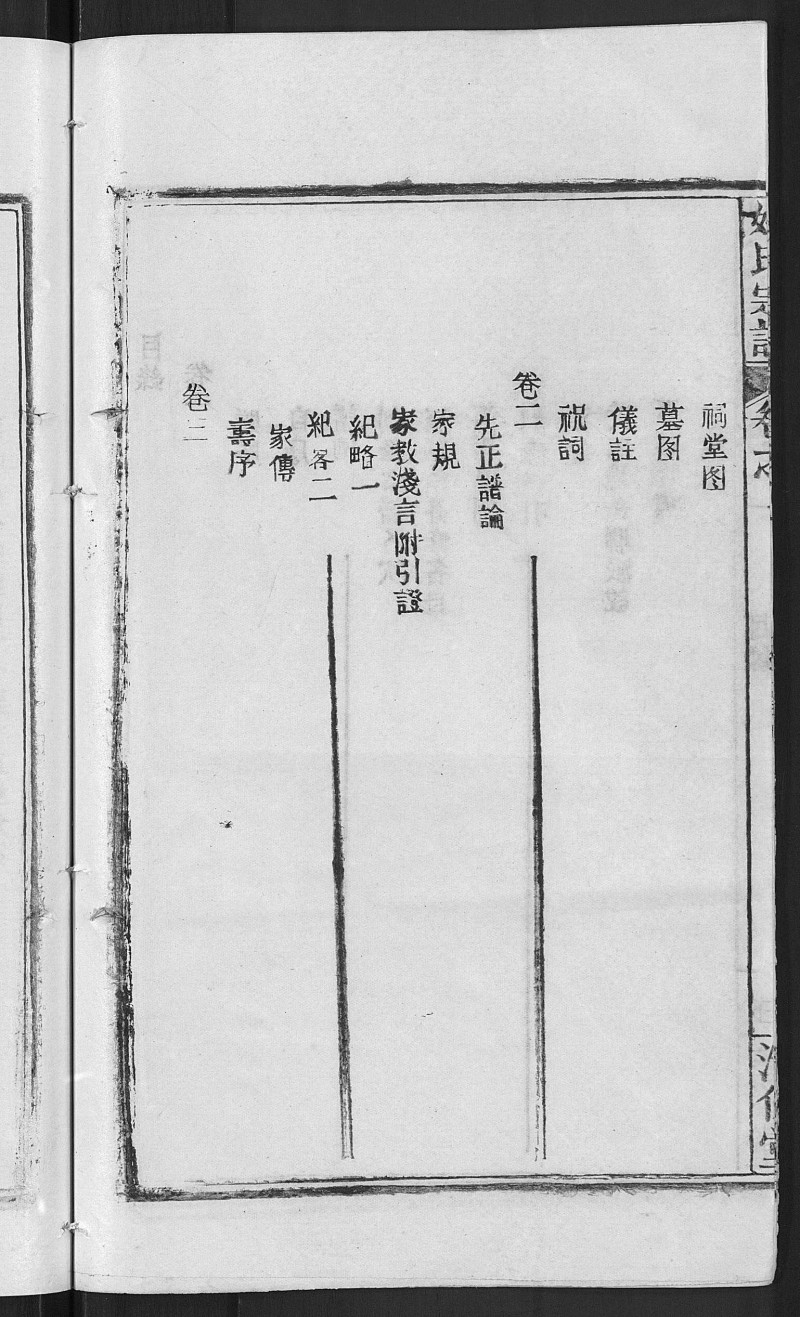 祠堂图
墓图
儀註
祝詞
卷二
先正譜論
家規
家教淺言附引證
紀略一
紀客二
家傳
壽序
卷三
氏宗譜
卷之
堂